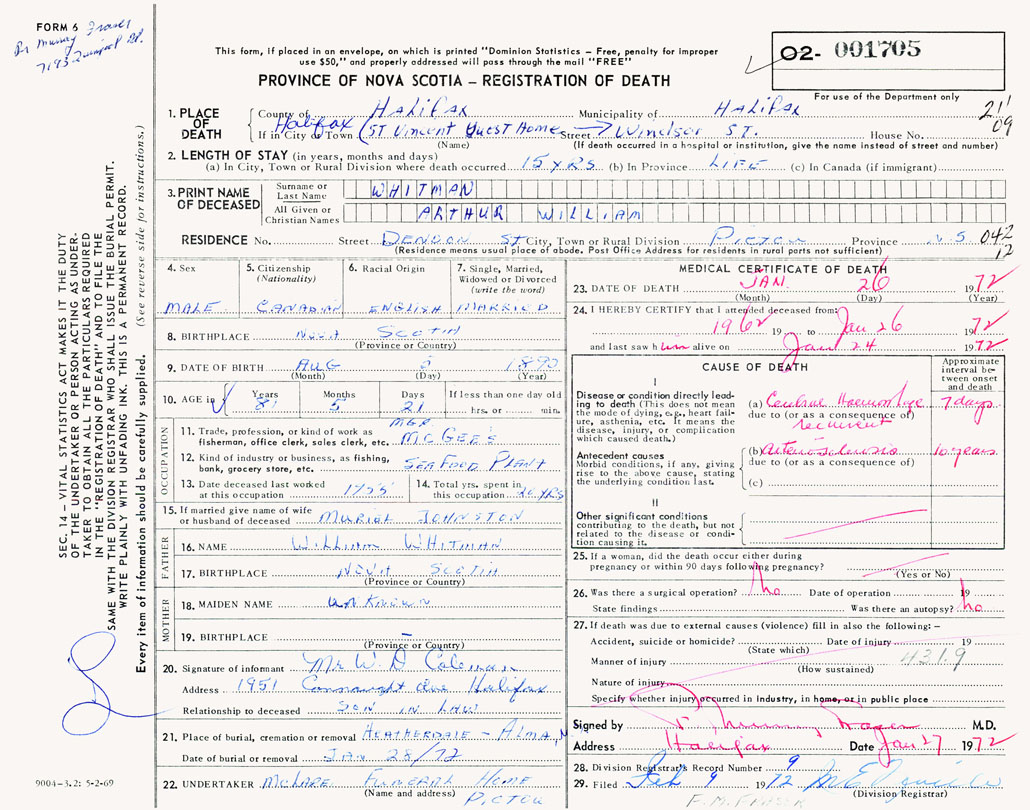 FORM 6 Fraser
Dr Murray
7193 Quinpool Rd.
This form, if placed in an envelope, on which is printed "Dominion Statistics – Free, penalty for improper
use $50," and properly addressed will pass through the mail "FREE"
PROVINCE OF NOVA SCOTIA – REGISTRATION OF DEATH
02- 001705
For use of the Department only
211
09
1. PLACE OF DEATH
County of HALIFAX Municipality of HALIFAX
If in City or Town Halifax (ST Vincent Guest Home Street → Windsor ST. House No.
(Name) (If death occurred in a hospital or institution, give the name instead of street and number)
2. LENGTH OF STAY (in years, months and days)
(a) In City, Town or Rural Division where death occurred 15 YRS (b) In Province LIFE (c) In Canada (if immigrant)
3. PRINT NAME OF DECEASED
Surname or Last Name WHITMAN
All Given or Christian Names ARTHUR WILLIAM
RESIDENCE No. Street ST City, Town or Rural Division PICTOU Province N.S 042
(Residence means usual place of abode. Post Office Address for residents in rural parts not sufficient) 12
4. Sex MALE
5. Citizenship (Nationality) CANADIAN
6. Racial Origin ENGLISH
7. Single, Married, Widowed or Divorced (write the word) MARRIED
8. BIRTHPLACE NOVA SCOTIA
(Province or Country)
9. DATE OF BIRTH AUG 5 1890
(Month) (Day) (Year)
10. AGE in Years 81 Months 5 Days 21 If less than one day old hrs. or min.
OCCUPATION
11. Trade, profession, or kind of work as fisherman, office clerk, sales clerk, etc. MGR McGEE'S
12. Kind of industry or business, as fishing, bank, grocery store, etc. SEA FOOD PLANT
13. Date deceased last worked at this occupation 1955
14. Total yrs. spent in this occupation 20 YRS
15. If married give name of wife or husband of deceased MURIEL JOHNSTON
FATHER
16. NAME WILLIAM WHITMAN
17. BIRTHPLACE NOVA SCOTIA
(Province or Country)
MOTHER
18. MAIDEN NAME UNKNOWN
19. BIRTHPLACE –
(Province or Country)
20. Signature of informant Mr W. D Coleman
Address 1951 Connaught Ave Halifax
Relationship to deceased SON IN LAW
21. Place of burial, cremation or removal HEATHERDALE – ALMA, N
Date of burial or removal JAN 28/72
22. UNDERTAKER McLAREN FUNERAL HOME
(Name and address) PICTOU
MEDICAL CERTIFICATE OF DEATH
23. DATE OF DEATH JAN. 26 1972
(Month) (Day) (Year)
24. I HEREBY CERTIFY that I attended deceased from:
1962 19 to Jan 26 1972
and last saw him alive on Jan 24 1972
CAUSE OF DEATH
Approximate interval between onset and death
I
Disease or condition directly leading to death (This does not mean the mode of dying, e.g., heart failure, asthenia, etc. It means the disease, injury, or complication which caused death.)
(a) Cerebral Haemorrhage 7 days
due to (or as a consequence of)
recurrent
Antecedent causes
Morbid conditions, if any, giving rise to the above cause, stating the underlying condition last.
(b) Arteriosclerosis 10 years
due to (or as a consequence of)
(c)
II
Other significant conditions
contributing to the death, but not related to the disease or condition causing it.
25. If a woman, did the death occur either during pregnancy or within 90 days following pregnancy?
(Yes or No)
26. Was there a surgical operation? no Date of operation 19
State findings Was there an autopsy? no
27. If death was due to external causes (violence) fill in also the following: –
Accident, suicide or homicide? Date of injury 19
(State which)
Manner of injury 431.9
(How sustained)
Nature of injury
Specify whether injury occurred in industry, in home, or in public place
Signed by F Murray Fraser M.D.
Address Halifax Date Jan 27 1972
28. Division Registrar's Record Number 9
29. Filed Feb 9 1972
(Division Registrar)
F. M. FRASER
SEC. 14 – VITAL STATISTICS ACT MAKES IT THE DUTY
OF THE UNDERTAKER OR PERSON ACTING AS UNDER-
TAKER TO OBTAIN ALL THE PARTICULARS REQUIRED
IN THE "REGISTRATION OF DEATH" AND TO FILE THE
SAME WITH THE DIVISION REGISTRAR WHO SHALL ISSUE THE BURIAL PERMIT.
WRITE PLAINLY WITH UNFADING INK. THIS IS A PERMANENT RECORD.
Every item of information should be carefully supplied. (See reverse side for instructions.)
9004-3.2: 5-2-69